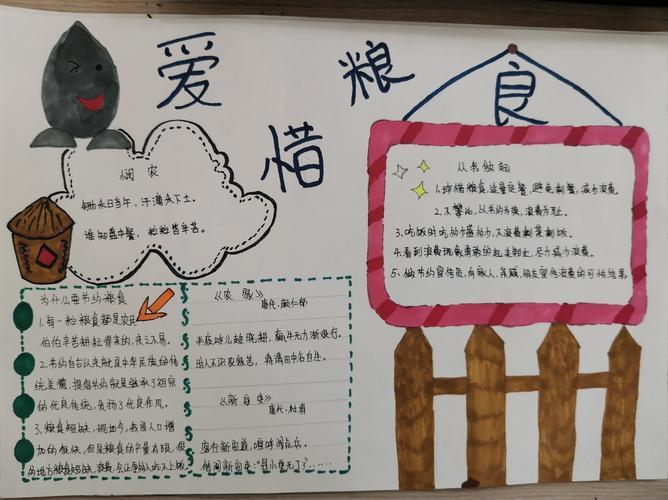 爱惜粮食
悯农
锄禾日当午，汗滴禾下土。
谁知盘中餐，粒粒皆辛苦。
从我做起
1.珍惜粮食，适量定餐，避免剩餐，减少浪费。
2.不攀比，以节约为荣，浪费为耻。
3.吃饭时吃多少盛多少，不浪费剩菜剩饭。
4.看到浪费现象勇敢的起来制止，尽力减少浪费。
5.做节约宣传员，向家人、亲戚、朋友宣传浪费的可怕结果
为什么要节约粮食
1.每一粒粮食都是农民
伯伯辛苦耕耘得来的，来之不易。
2.节约自古以来就是中华民族的传
统美德，提倡节约就是继承了祖宗
的优良传统，发扬了优良作风。
3.粮食短缺，现如今，我国人口增
加的很快，但是粮食的产量有限，很
多地方粮食短缺，
《农家》
唐代·颜仁郁
半夜呼儿趁晓耕，羸牛无力渐艰行。
时人不识农家苦，将谓田中谷自生。
《新安吏》
唐代·杜甫
客行新安道，喧呼闻点兵。
借问新安吏：“县小更无丁？……